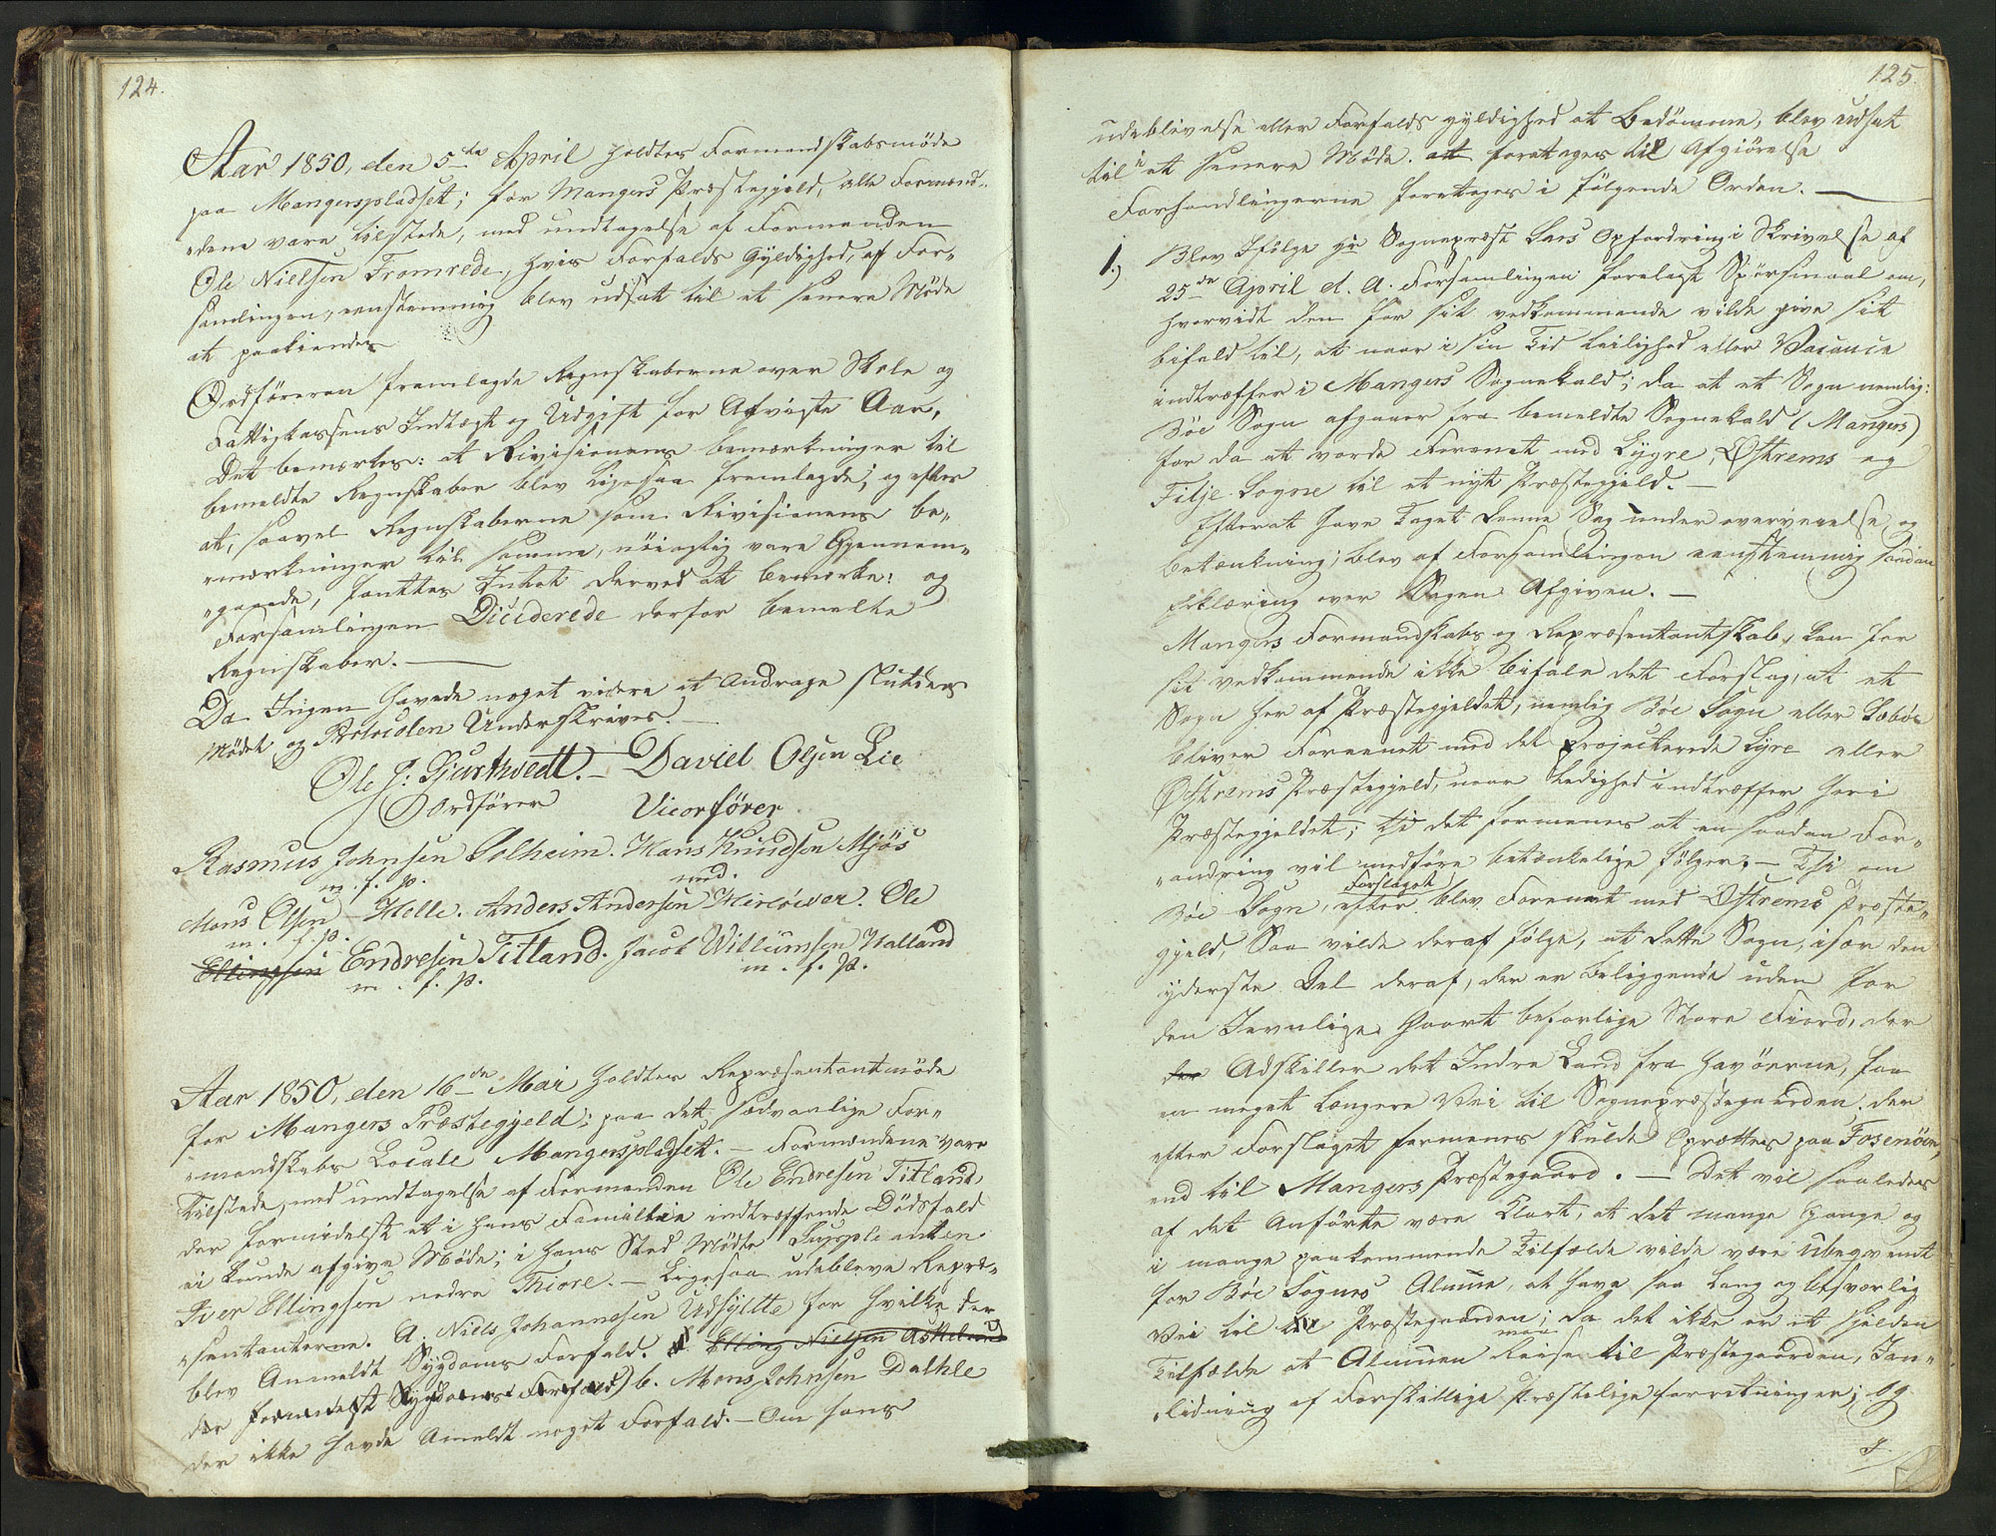 124.
Aar 1850, den 5te April holdtes Formandskabsmöde
paa Mangerspladset; for Mangers Præstegjeld, alle Formænd-
"dene vare tilstede, med undtagelse af Formanden
Ole Nielsen Fromrede, hvis Forfalds Gyldighed, af For-
samlingen, eenstemmig blev udsat til et senere Möde
at paakiendes
Ordföreren fremlagde Regnskaberne over Skole og
Fattigkassens Indtægt og Udgift for Afvigte Aar,
Det bemærkes: at Rivisionens bemærkninger til
bemeldte Regnskaber blev ligesaa fremlagde; og efter
at, saavel Regnskaberne som Rivisionens be-
"mærkninger til samme, nöiagtig vare Gjennem-
"gaaede, fanttes Intet derved at bemærke: og
Forsamlingen Diciderede derfor bemelte
Regnskaber. —
Da Ingen havde noget videre at Andrage sluttedes
Mödet og Protocolen Underskrives. —
Ole J: Gjurthvedt. — David Olsen Lie
Ordförer Viceorförer
Rasmus Johnsen Solheim. Hans Knudsen Mjös
m. f. P. med.
Mons Olsen — Helle. Anders Andersen Hirlöiver. Ole
m. f. P.
Ellingsen Endresen Titland. Jacob Willumsen Halland
m. f. P. m. f. P.
Aar 1850, den 16de Mai holdtes Repræsentantmöde
for Mangers Præstegjeld; paa det sædvanlige For-
"mandskabs Locale Mangerspladset. — Formændene vare
tilstede, med undtagelse af Formanden Ole Endresen Titland,
der formedelst et i hans Familie indtræffende Dödsfald
ei kunde afgive Möde; i hans Sted Mödte Suppleanten
Iver Ellingsen nedre Thiore. — Ligesaa udebleve Repræ-
"sentanterne. A. Niels Johannesen Udsyltte for hvilke der
blev Anmeldt Sygdoms Forfald. Elling Nielsen Askeland
der formedelst Sygdoms Forfald) b. Mons Johnsen Dalhle
der ikke havde Anmeldt noget Forfald. — Om hans
125.
udeblivelse eller Forfalds gyldighed at bedömme, blev udsat
til et senere Möde. at foretages til Afgiörelse
Forhandlingerne foretages i fölgende Orden. —
1.) Blev Ifölge Hr Sognepræst Lars Opfordring i Skrivelse af
25de April d. A. Forsamlingen forelagt Spörsmaal om,
hvorvidt den for sit vedkommende vilde give sit
bifald til, at naar i sin Tid Leilighed eller Vacance
indtræffer i Mangers Sognekald; da at et Sogn nemlig:
Böe Sogn afgaaer fra bemeldte Sognekald (Mangers)
for da at vorde Forenet med Lygre, Østrems og
Fitje Sogne til et nyt Præstegjeld. —
Efterat have Taget denne Sag under overveielse og
betænkning; blev af Forsamlingen eenstemmig saadan
Erklæring over Sagen Afgiven. —
Mangers Formandskabs og Repræsentantskab, kan for
sit vedkommende ikke bifale det Forslag, at et
Sogn her af Præstegjeldet, nemlig Böe Sogn eller Bøböe
bliver Foreenet med det Projecterede Lyre eller
Østrems Præstegjeld, naar Ledighed indtræffer her i
Præstegjeldet; thi det formenes at en saadan For-
"andring vil medföre betænkelige fölger; — Thi om
Böe Sogn, efter Forslaget blev Forenet med Østrems Præste-
gjeld, Saa vilde deraf fölge, at dette Sogn, især den
yderste Del deraf, der er beliggende uden for
den Jevnlige Haart befarlige Store Fiord, der
der Adskiller det Indre Land fra Havöerne, faa
en meget længere Vei til Sognepræstegaarden, der
efter Forslaget formenes skulde Oprættes paa Fosenöen,
end til Mangers Præstegaard. — Det vil saaledes
af det Anförte være klart, at det mange Gange og
i mange paakommende Tilfælde vilde være Ubeqvemt
for Böe Sognes Almue, at have saa lang og besværlig
Vei til Præstegaarden; da det ikke er et sjelden
Tilfælde at Almuen maa Reise til Præstegaarden, I An-
"ledning af Forskillige Præstelige forretninger; Og